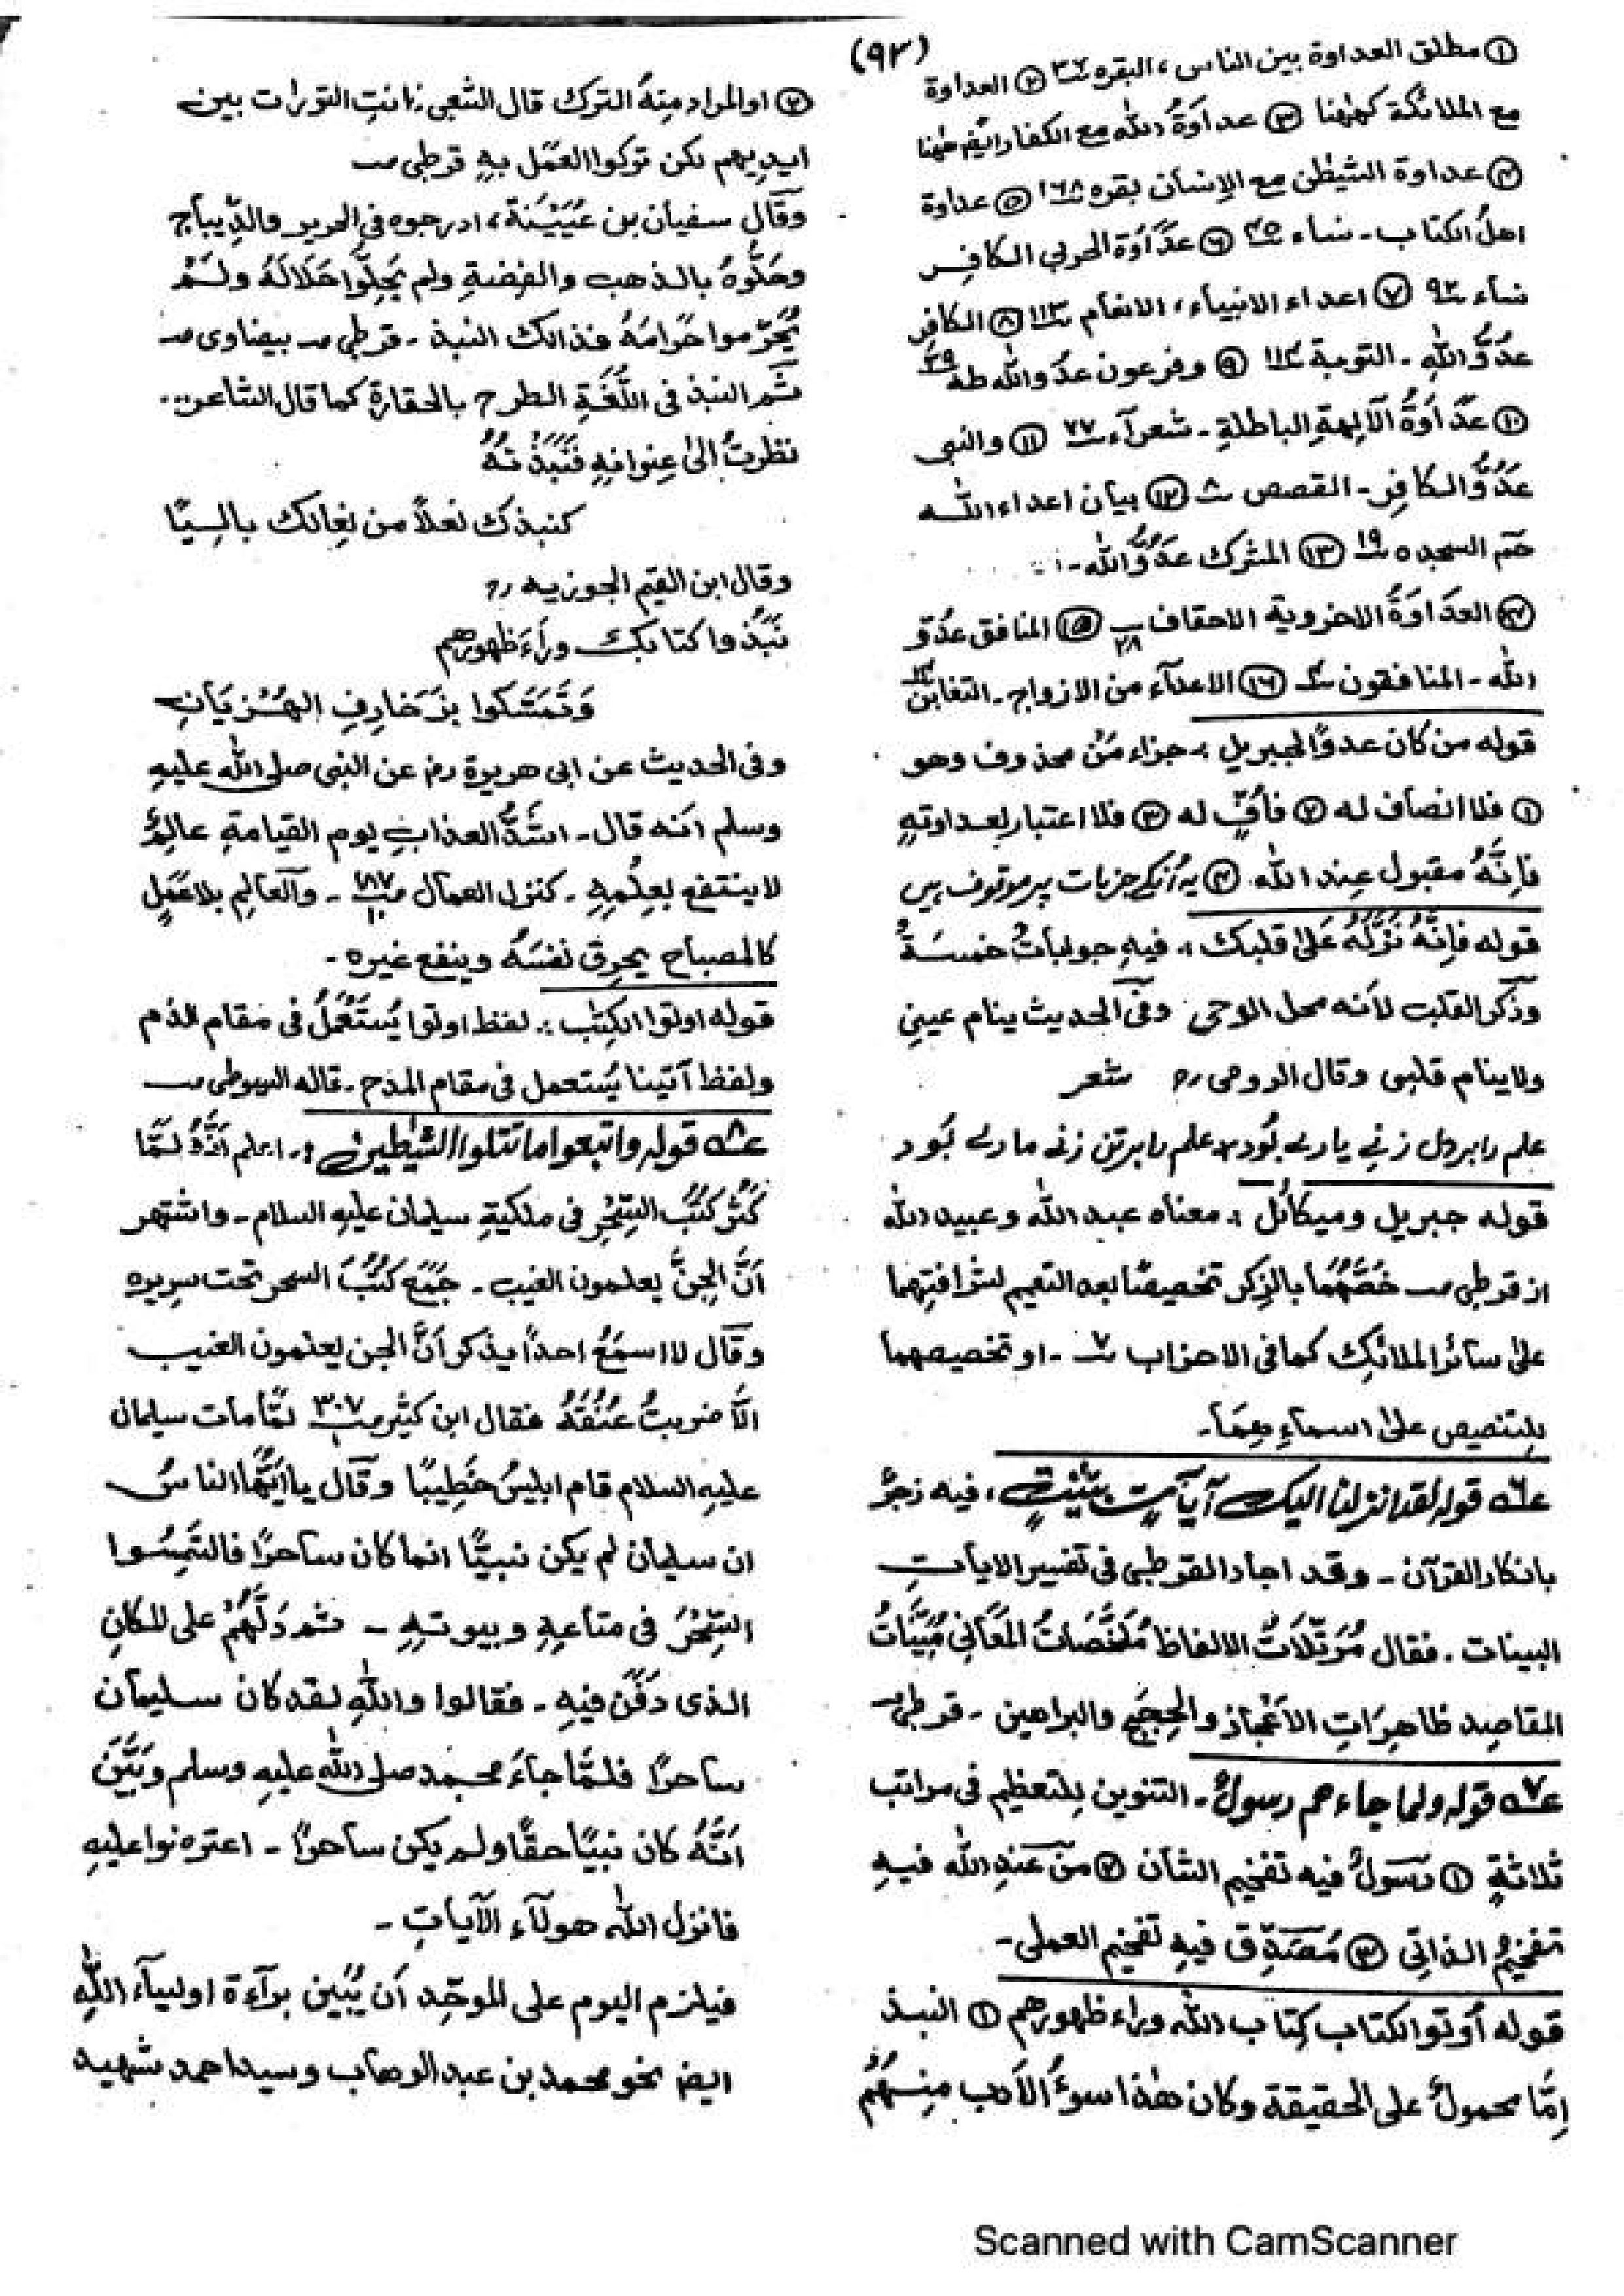 (٩٢)
① مطلق العداوة بين الناس، البقره ٣٦ ② العداوة
مع الملائكة كهٰهنا ③ عداوَةُ الله مع الكفار ايضً هٰهنا
④ عداوة الشيطٰن مع الإنسان بقره ١٦٨ ⑤ عداوة
اهلُ الكتاب - نساء ٤٥ ⑥ عدَاوَة الحربي الكافِر
نساء ٩٢ ⑦ اعداء الانبياء، الانعام ١١٣ ⑧ الكافِر
عدُوُّ اللهِ - التوبة ١١٤ ⑨ وفرعون عدُو الله طهٰ ٣٩
⑩ عدَاوَةُ الآلِهةِ الباطلةِ - شعرآء ٧٧ ⑪ والنبي
عَدُوُّ الكافِرِ - القصص ٨ ⑫ بيان اعداء الله
حٓم السجده ١٩ ⑬ المشرك عدُوُّ الله -
⑭ العدَاوَةُ الاخروية الاحقاف ٢٨ ⑮ المنافق عدُوّ
الله - المنافقون ٤ ⑯ الاعدآء من الازواج - التغابن ١٤
قوله من كان عدوًّا لجبريل؛ جزاء مَنْ محذوف وهو
① فلا انصاف له ② فأُفٍّ له ③ فلا اعتبار لِعداوتهٖ
فإنَّهُ مقبول عِند الله ④ يہ اُنكے جزبات پر موقوف ہیں
قوله فإنَّهُ نَزَّلَهُ عَلىٰ قلبك؛ فيهِ جوابأتٌ خمسَةٌ
وذكر القلب لأنه محل الوحي وفي الحديث ينام عيني
ولا ينام قلبى وقال الرومى رح شعر
علم را بر دل زنی یارے بُود علم را بر تن زنی مارے بُود
قوله جبريل وميكائل؛ معناه عبد الله وعبيد الله
از قرطبى خَصَّهُمَا بالذِكر تخصيصًا بعد التعميم لِشرافتِهِما
علىٰ سائر الملائِك كما فى الاحزاب ٧ - او تخصيصهما
لِلتنصيص علىٰ اسمآءِهِمَا -
٦ قوله لقد انزلنا اليك آيآتٍ بيّنٰتٍ، فيه زجرٌ
بانكار القرآن - وقد اجاد القرطبى فى تفسير الايات
البينات - فقال مُرَتّلَاتُ الالفاظ مُلَخَّصَاتُ المَعَانِي مُبَيَّنَاتُ
المقاصِد ظاهِرَاتِ الأعْجاز والحِجَجِ والبراهين - قرطبى
٧ قوله ولما جاءهم رسولٌ - التنوين لِلتعظيم فى مراتب
ثلاثةٍ ① رَسولٌ فيه تفخيم الشأن ② مِنْ عندِ الله فيهِ
تفخيمُ الذاتِي ③ مُصَدِّق فيهِ تفخيم العملى -
قوله أوتو الكتاب كِتاب الله وراء ظهورهم ① النبذ
إمّا محمولٌ على الحقيقة وكان هٰذا سوءُ الأدب مِنهُم
② او المراد مِنهُ الترك قال الشعبى كانتِ التورات بين
ايديهم لكن تركوا العمَل بهٖ قرطبى
وقال سفيان بن عُيَيْنَة، ادرجوه فى الحرير والدِّيباج
وحَلُّوهُ بالذهب والفِضةِ ولم يُحِلُّوا حَلَالَهُ ولَمْ
يُحَرِّموا حَرامَهُ فذالك النبذ - قرطبى بيضاوى
ثم النبذ فى اللُّغَةِ الطرح بالحقارةِ كما قال الشاعر
نظرتُ الىٰ عِنوانهٖ فَنَبَذْتُهُ
كنبذك نعلاً من نِعالك بالِيَّا
وقال ابن القيم الجوزيه رح
نَبَذُوا كتابك وراءَ ظهورهم
وَتَمَسَّكوا بزَخارِفِ الهَذَيَانِ
وفى الحديث عن ابى هريرة رض عن النبى صلى الله عليهِ
وسلم انه قال - اشدُّ العذابِ يوم القيامةِ عالِمٌ
لا ينتفع بعِلْمِهٖ - كنزل العمال ١٨٧/١٠ - والعالِم بلا عَمَلٍ
كالمصباح يحرِق نفسَهُ وينفع غيره -
قوله اوتوا الكِتٰب؛ لفظ اوتوا يُستَعْمَلُ فى مقام الذم
ولفظ آتينا يُستعمل فى مقام المدح - قاله السيوطى
٨ قوله واتبعوا ما تتلوا الشيٰطين؛ اعلم أنَّهُ لَمَّا
كَثُر كُتُبُ السِّحْرِ فى ملكيةِ سليمان عليهِ السلام - واشتهر
أنَّ الجِنَّ يعلمون الغيب - جَمَعَ كُتُبَ السحر تحت سريره
وقال لا اسمَعُ احدًا يذكر أنَّ الجن يعلمون الغيب
الَّا ضربتُ عُنُقَهُ فقال ابن كثير ٣٠٧/١ لمَّا مات سليمان
عليهِ السلام قام ابليسُ خَطِيبًا وقال يا ايُّها الناسُ
ان سليمان لم يكن نبيًّا انما كان ساحرًا فالتَمِسُوا
السِّحْرَ فى متاعِهٖ وبيوتهٖ - ثم دَلَّهُمْ على المكانِ
الذى دَفَنَ فيهِ - فقالوا واللهِ لقد كان سليمان
ساحرًا فلمَّا جاءَ محمد صلى الله عليهِ وسلم وبَيَّنَ
انَّهُ كان نبيًا حقًّا ولم يكن ساحرًا - اعترضوا عليهِ
فانزل الله هولآء الآياتِ -
فيلزم اليوم على الموحِّد أن يُبَين برآءة اوليآء اللهِ
ايضً نحو محمد بن عبد الوهاب وسيد احمد شهيد
Scanned with CamScanner